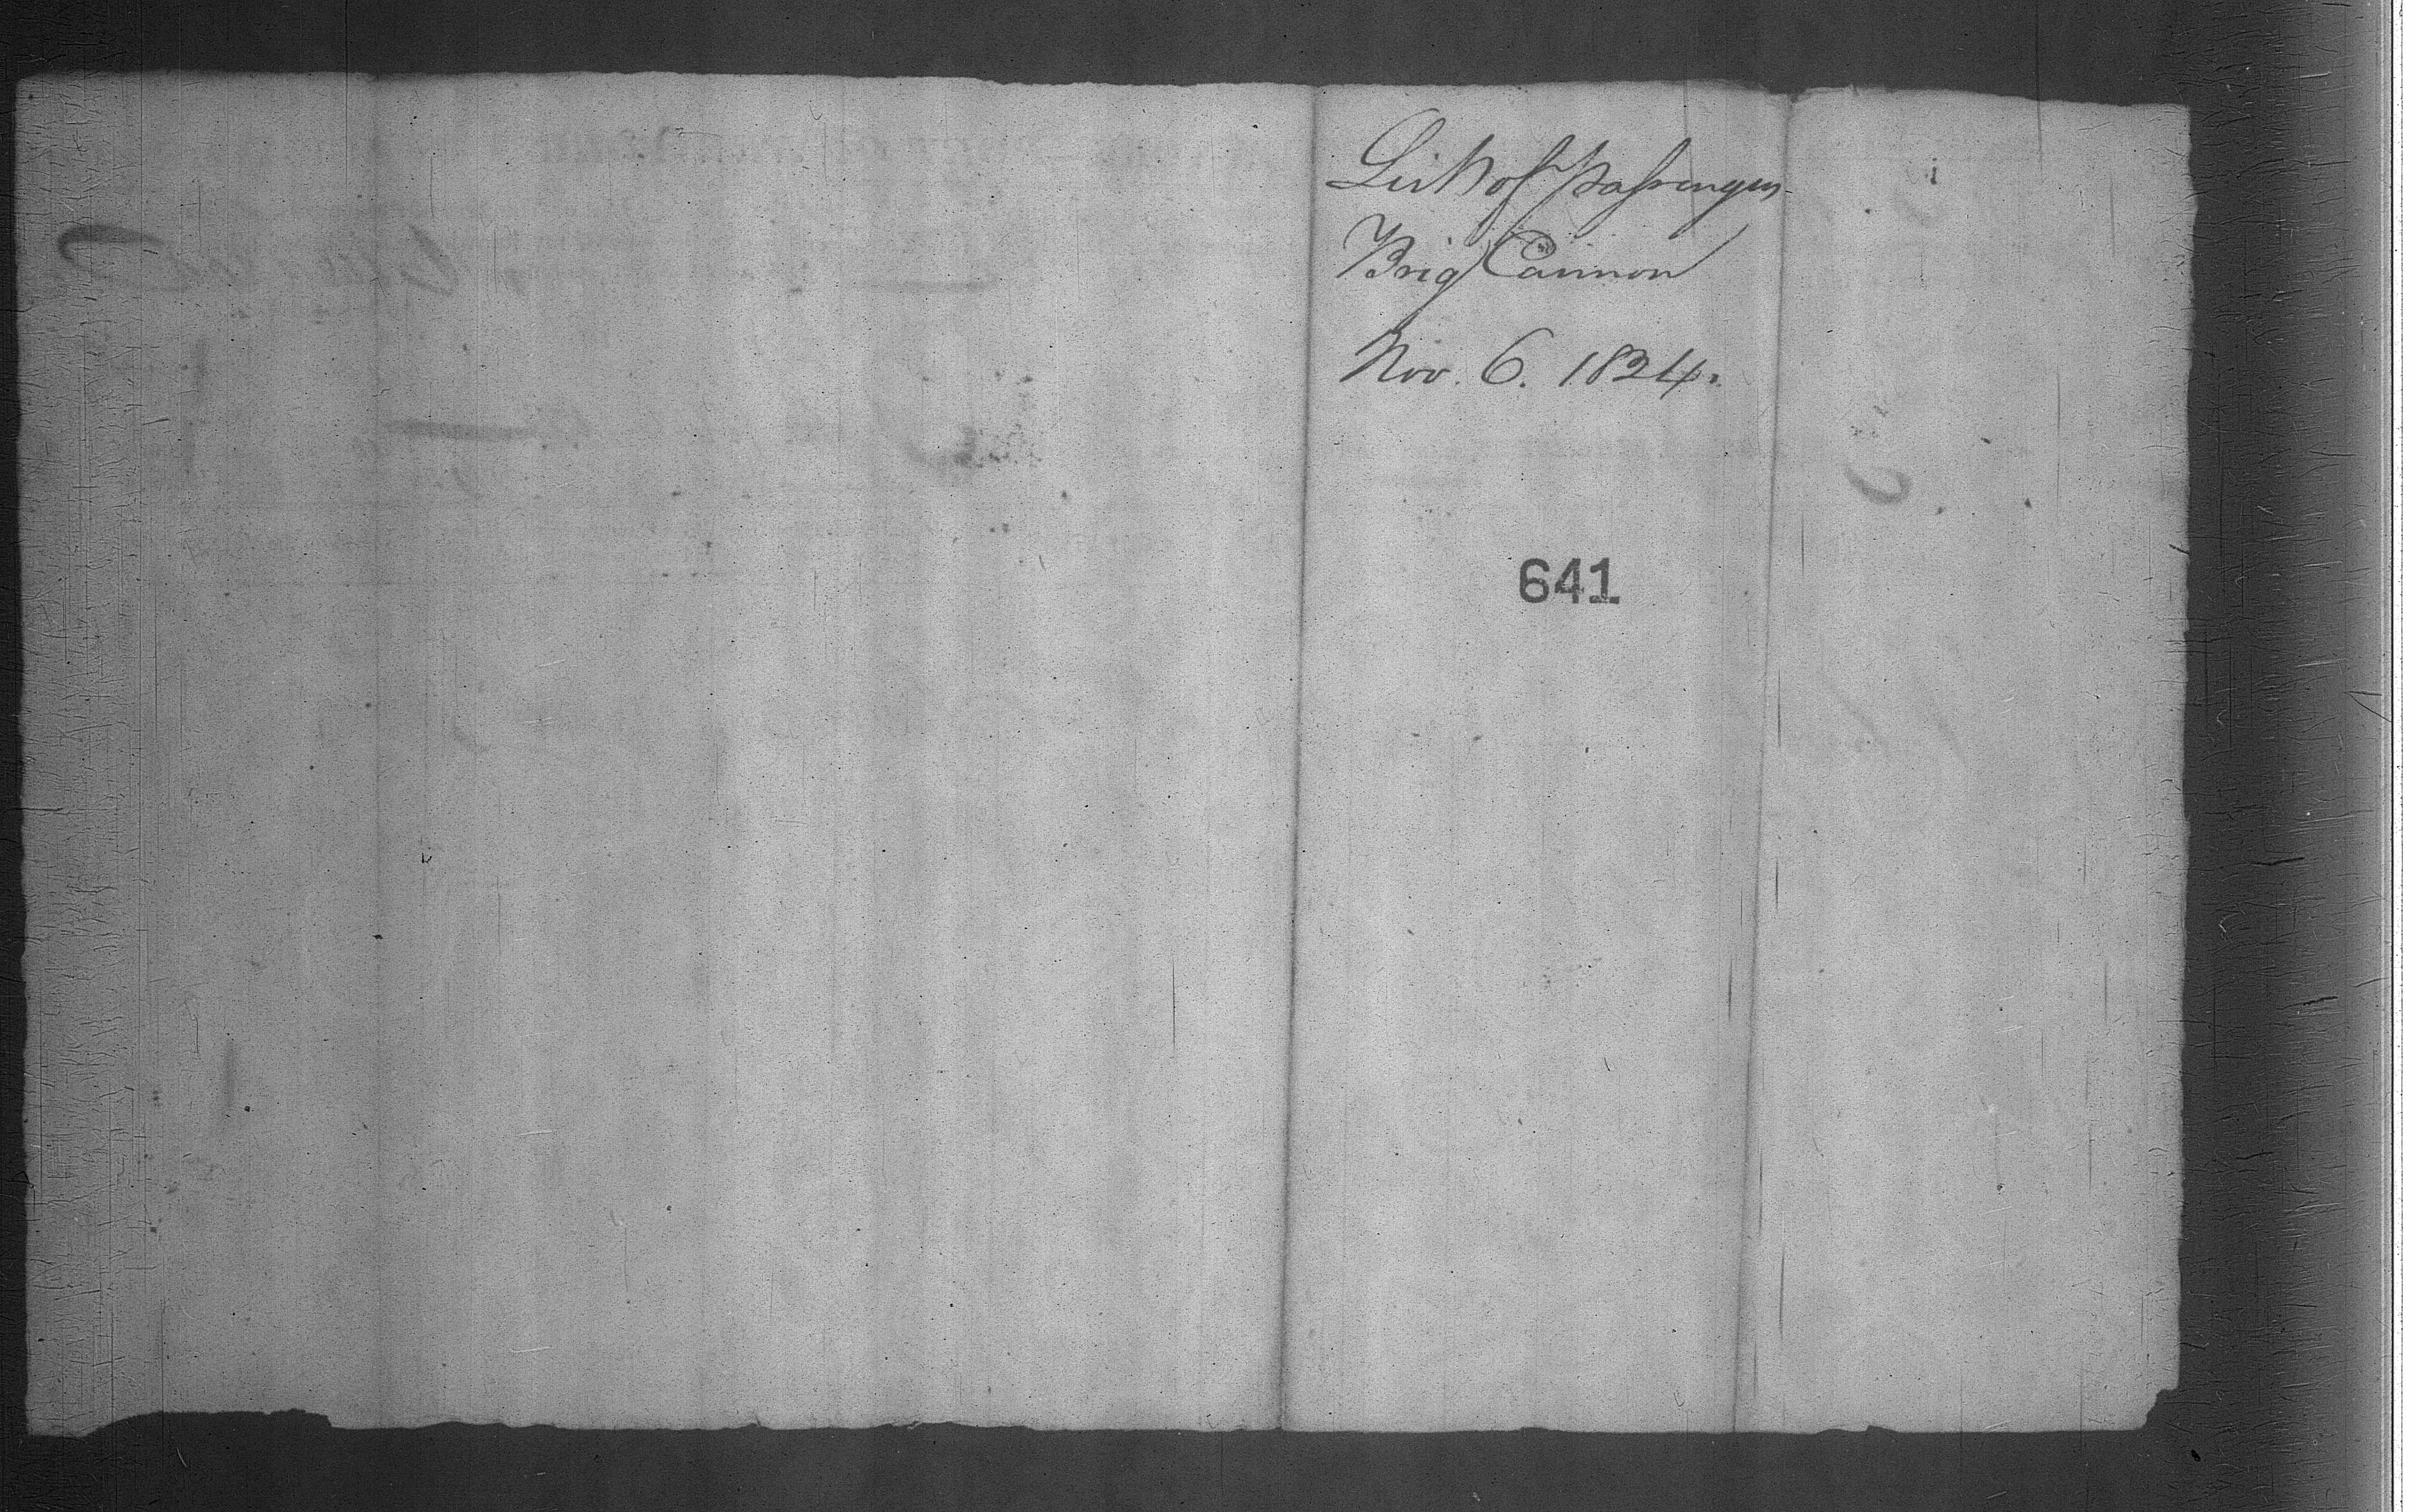 List of passengers
Brig Cannon
Nov. 6. 1824.
641